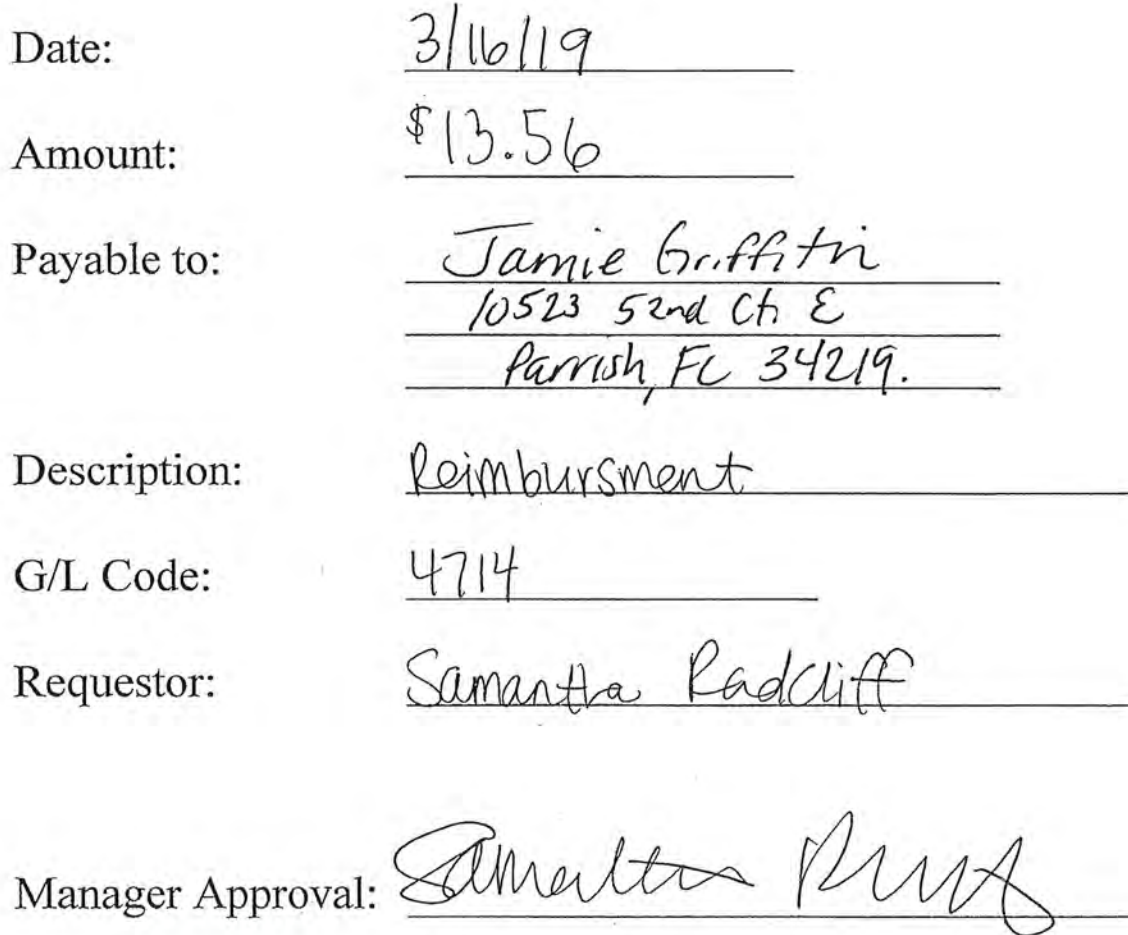 Date: 3/16/19
Amount: $13.56
Payable to: Jamie Griffith
10523 52nd Ct. E
Parrish, FL 34219.
Description: Reimbursment
G/L Code: 4714
Requestor: Samantha Radcliff
Manager Approval: Samantha